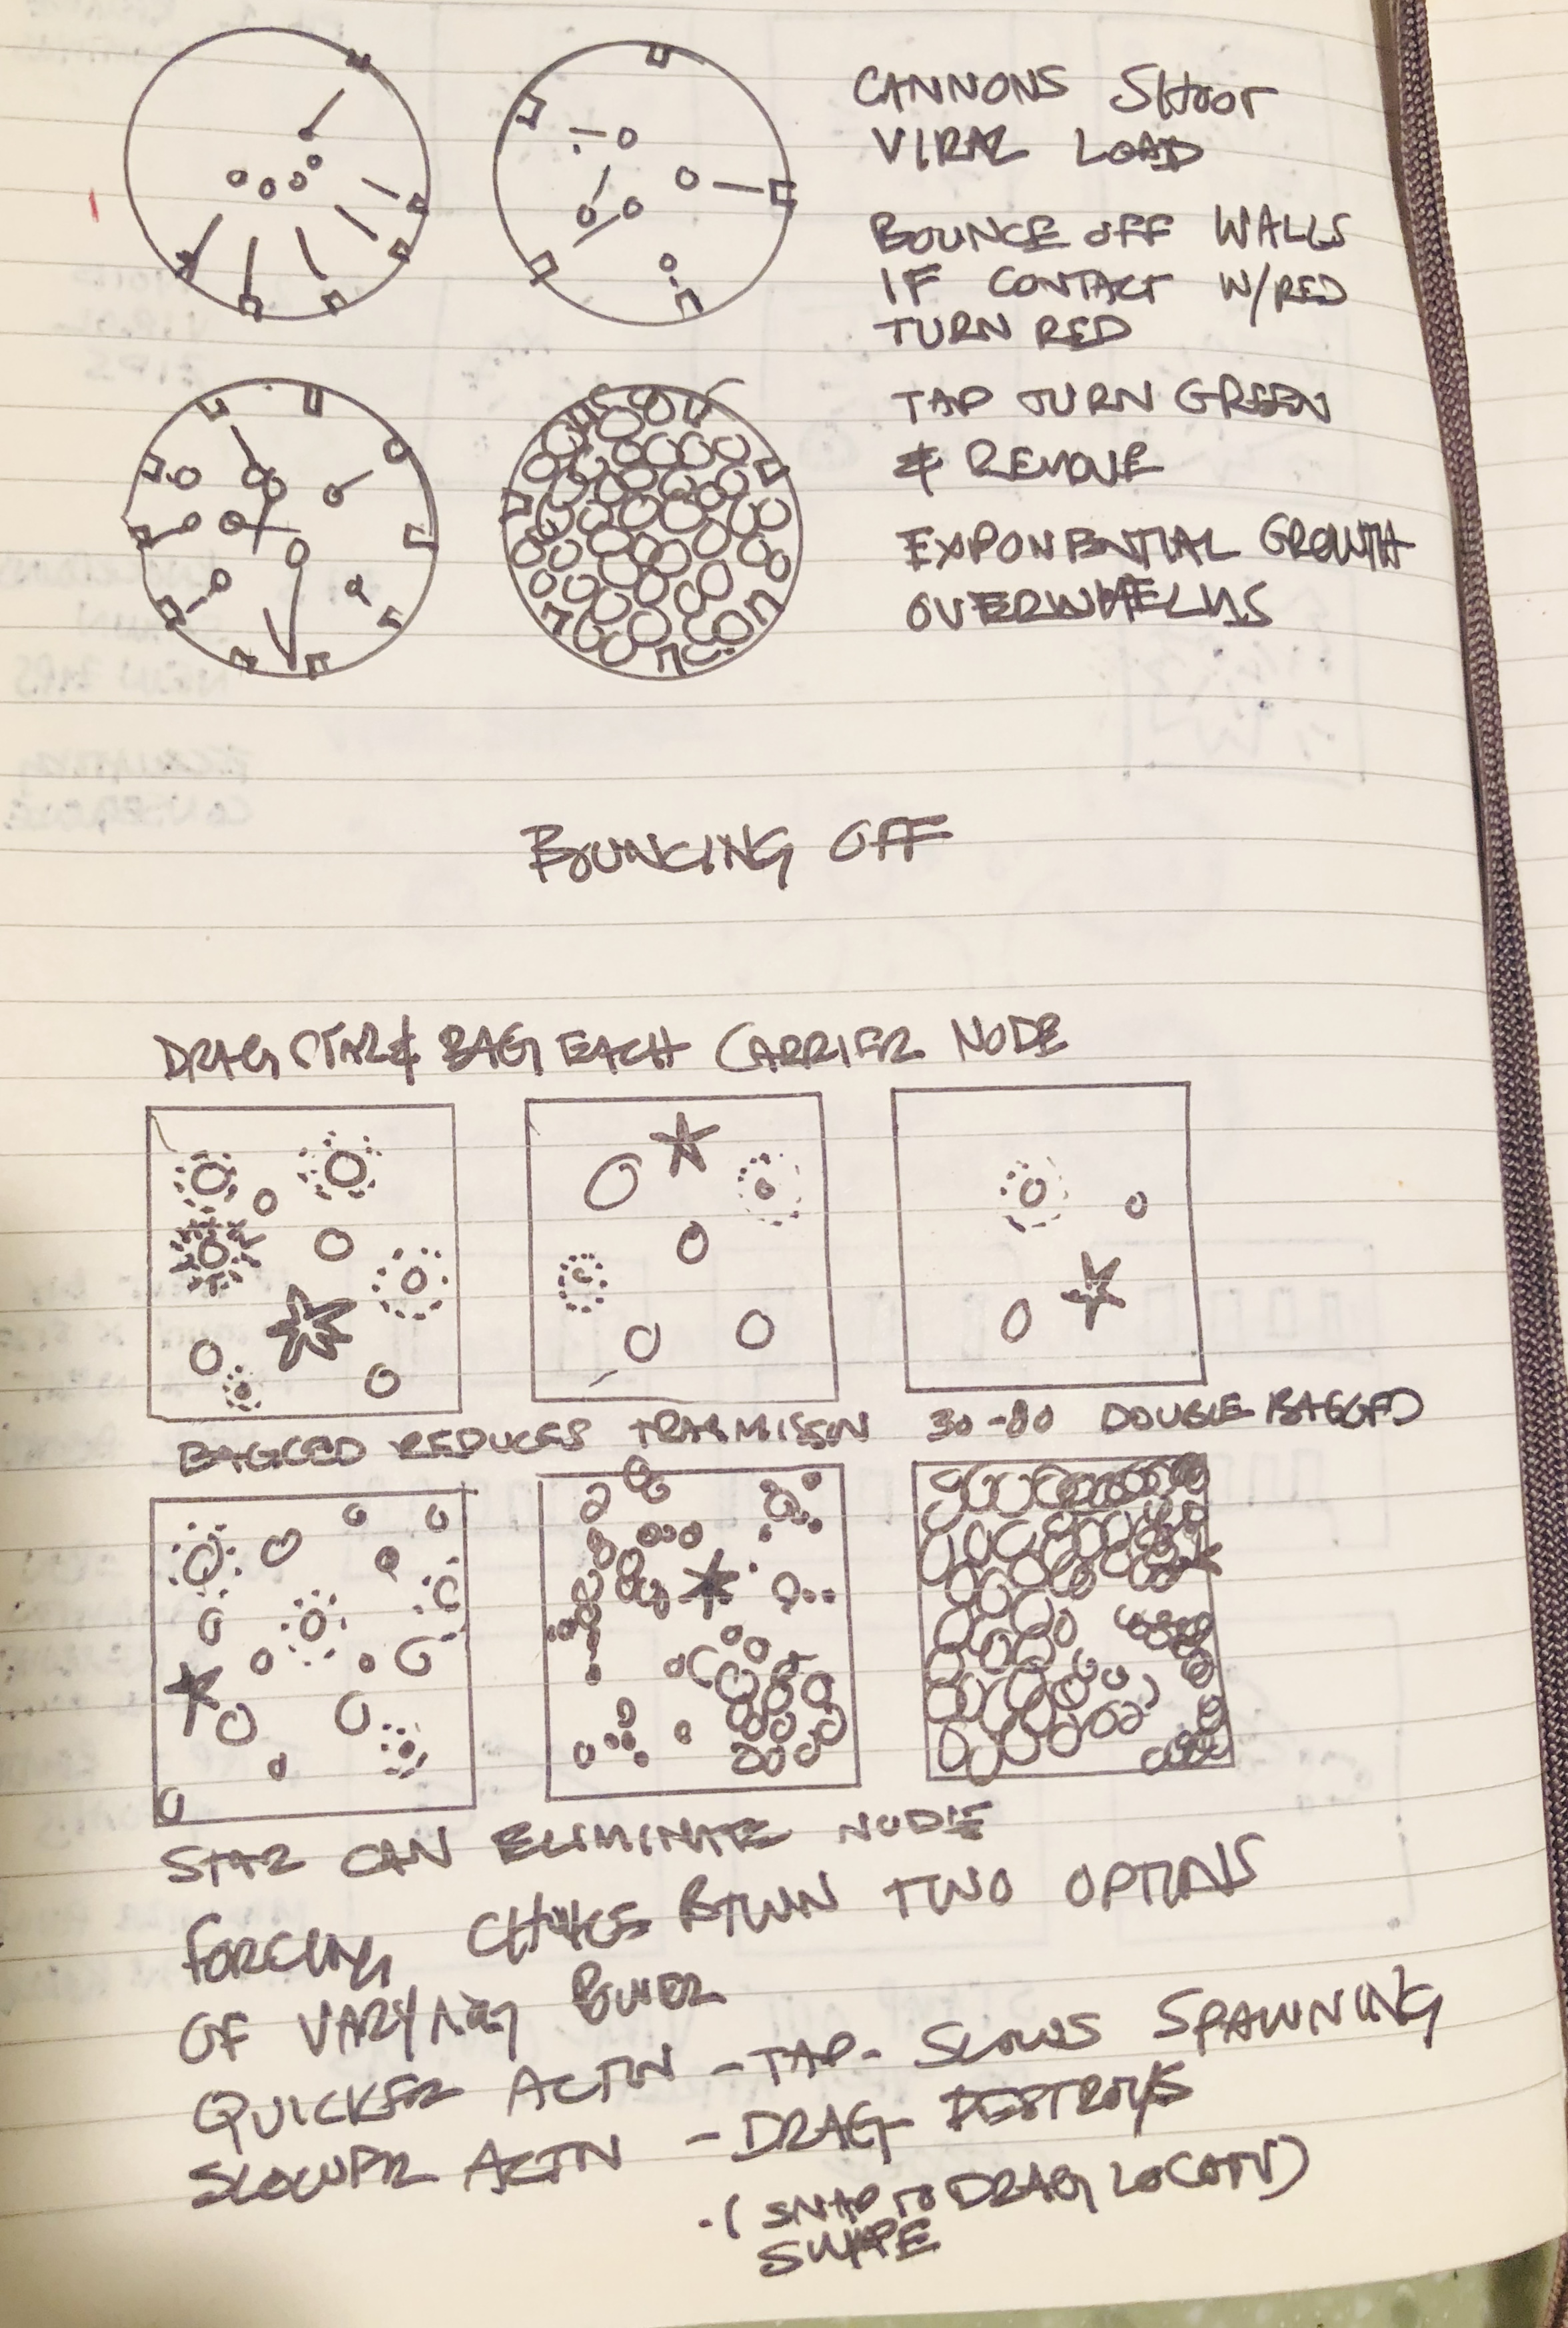 CANNONS SHOOT
VIRAL LOAD
BOUNCE OFF WALLS
IF CONTACT W/RED
TURN RED
TAP TURN GREEN
& REMOVE
EXPONENTIAL GROWTH
OVERWHELMS
BOUNCING OFF
DRAG STAR & BAG EACH CARRIER NODE
BAGGED REDUCES TRASMISSON 30-80 DOUBLE BAGGED
STAR CAN ELIMINATE NODE
FORCING CHOICE BTWN TWO OPTIONS
OF VARYING POWER
QUICKER ACTIN - TAP - SLOWS SPAWNING
SLOWER ACTIN - DRAG DESTROYS
(SNAP TO DRAG LOCATN)
SWIPE